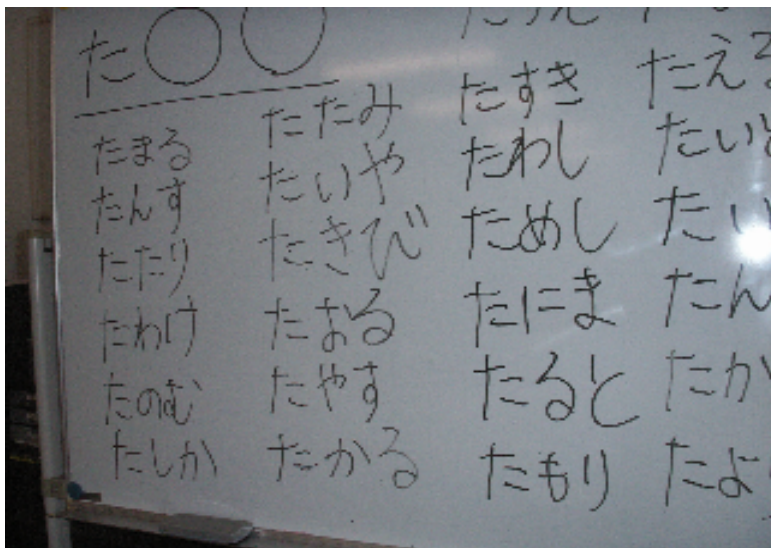 た○○
たまる
たんす
たたり
たわけ
たのむ
たしか
たたみ
たいや
たきび
たおる
たやす
たかる
たすき
たわし
ためし
たにま
たると
たもり
たえる